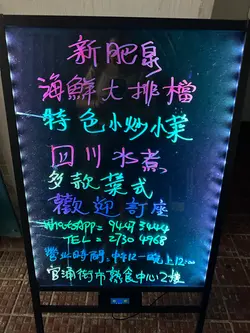 新肥泉
海鮮大排檔
特色小炒小菜
四川水煮
多款菜式
歡迎訂座
TEL= 2730 4968
營業時間:中午12-晚上12:00
官涌街市熟食中心2樓